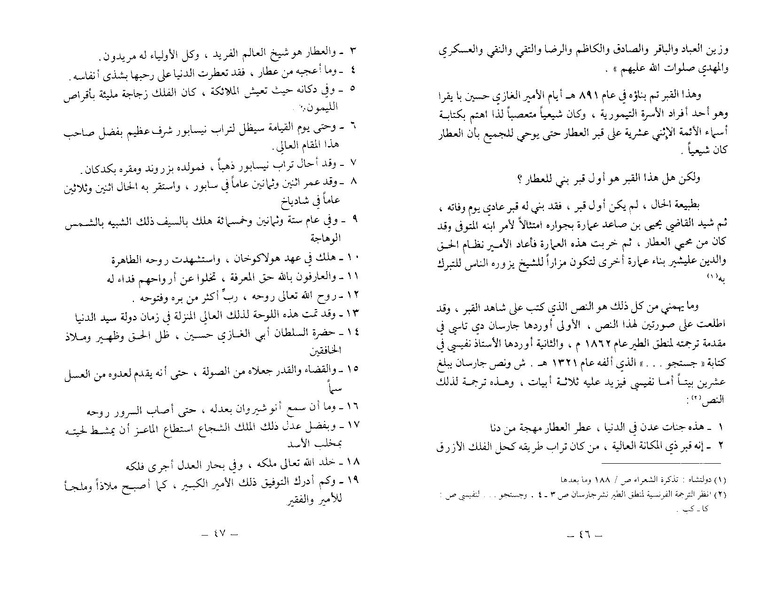 وزين العباد والباقر والصادق والكاظم والرضا والتقي والنقي والعسكري
والمهدي صلوات الله عليهم » .
وهذا القبر تم بناؤه في عام ٨٩١ هـ أيام الأمير الغازي حسين با يقرا
وهو أحد أفراد الأسرة التيمورية ، وكان شيعياً متعصباً لذا اهتم بكتابة
أسماء الأئمة الإثني عشرية على قبر العطار حتى يوحي للجميع بأن العطار
كان شيعياً .
ولكن هل هذا القبر هو أول قبر بني للعطار ؟
بطبيعة الحال ، لم يكن أول قبر ، فقد بني له قبر عادي يوم وفاته ،
ثم شيد القاضي يحيى بن صاعد عمارة بجواره امتثالاً لأمر ابنه المتوفى وقد
كان من محبي العطار ، ثم خربت هذه العمارة فأعاد الأمير نظام الحق
والدين عليشير بناء عمارة أخرى لتكون مزاراً للشيخ يزوره الناس للتبرك
به(١)
وما يهمني من كل ذلك هو النص الذي كتب على شاهد القبر ، وقد
اطلعت على صورتين لهذا النص ، الأولى أوردها جارسان دي تاسي في
مقدمة ترجمته لمنطق الطير عام ١٨٦٢ م ، والثانية أوردها الأستاذ نفيسي في
كتابة « جستجو . . . » الذي ألفه عام ١٣٢١ هـ . ش ونص جارسان يبلغ
عشرين بيتاً أما نفيسي فيزيد عليه ثلاثة أبيات ، وهذه ترجمة لذلك
النص(٢) :
١ ـ هذه جنات عدن في الدنيا ، عطر العطار مهجة من دنا
٢ ـ إنه قبر ذي المكانة العالية ، من كان تراب طريقه كحل الفلك الأزرق
(١) دولتشاه : تذكرة الشعراء ص / ١٨٨ وما بعدها
(٢) انظر الترجمة الفرنسية لمنطق الطير نشر جارسان ص ٣ ـ ٤ , وجستجو . . . لنفيسي ص :
كا ـ كب .
— ٤٦ —
٣ ـ والعطار هو شيخ العالم الفريد ، وكل الأولياء له مريدون.
٤ ـ وما أعجبه من عطار ، فقد تعطرت الدنيا على رحبها بشذى أنفاسه.
٥ ـ وفي دكانه حيث تعيش الملائكة ، كان الفلك زجاجة مليئة بأقراص
الليمون
٦ ـ وحتى يوم القيامة سيظل لتراب نيسابور شرف عظيم بفضل صاحب
هذا المقام العالي.
٧ ـ وقد أحال تراب نيسابور ذهباً ، فمولده بزروند ومقره بكدكان.
٨ ـ وقد عمر اثنين وثمانين عاماً في سابور ، واستقر به الحال اثنين وثلاثين
عاماً في شادياخ
٩ ـ وفي عام ستة وثمانين وخمسمائة هلك بالسيف ذلك الشبيه بالشمس
الوهاجة
١٠ ـ هلك في عهد هولاكوخان ، واستشهدت روحه الطاهرة
١١ ـ والعارفون بالله حق المعرفة ، تخلوا عن أرواحهم فداء له
١٢ ـ روح الله تعالى روحه ، رب أكثر من بره وفتوحه .
١٣ ـ وقد تمت هذه اللوحة لذلك العالي المنزلة في زمان دولة سيد الدنيا
١٤ ـ حضرة السلطان أبي الغازي حسين ، ظل الحق وظهير وملاذ
الخافقين
١٥ ـ والقضاء والقدر جعلاه من الصولة ، حتى أنه يقدم لعدوه من العسل
سماً
١٦ ـ وما أن سمع أنوشيروان بعدله ، حتى أصاب السرور روحه
١٧ ـ وبفضل عدل ذلك الملك الشجاع استطاع الماعز أن يمشط لحيته
بمخلب الأسد
١٨ ـ خلد الله تعالى ملكه ، وفي بحار العدل أجرى فلكه
١٩ ـ وكم أدرك التوفيق ذلك الأمير الكبير ، كما أصبح ملاذاً وملجأ
للأمير والفقير
— ٤٧ —